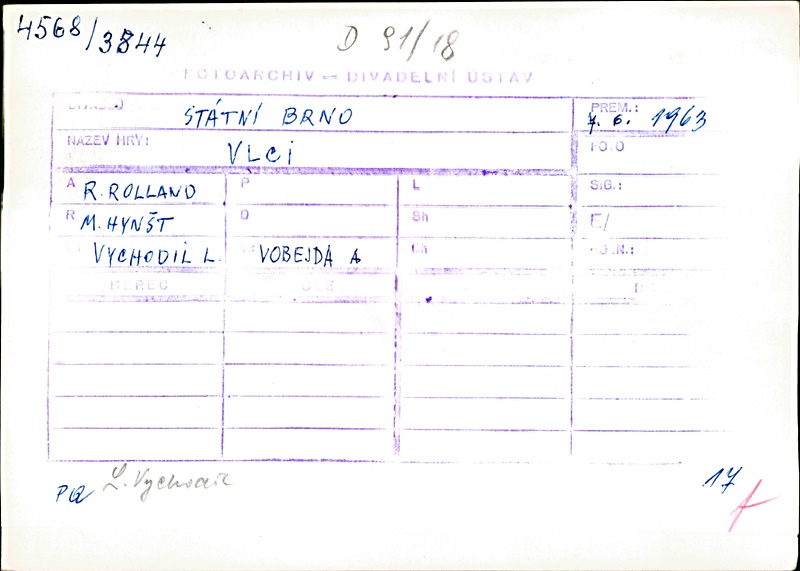 4568/3844
D 91/18
FOTOARCHIV — DIVADELNÍ ÚSTAV
DIVADLO STÁTNÍ BRNO
PREM.: 7. 6. 1963
NÁZEV HRY: VLCI
FOTO
A R. ROLLAND P L SIG.:
R M. HYNŠT D Sh E/
VYCHODIL L. VOBEJDA A Ch
HEREC
L. Vychodil
PQ
17